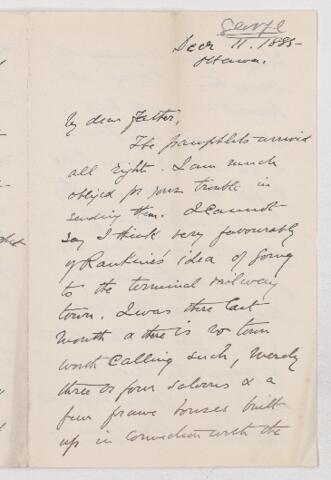 George
Decr 11. 1885
Ottawa.
My dear Father,
The pamphlets arrived
all right. I am much
obliged for your trouble in
sending them. I cannot
say I think very favourably
of Rankine's idea of going
to the terminal railway
town. I was there last
month & there is no town
worth calling such, merely
three or four saloons & a
few frame houses built
up in connection with the